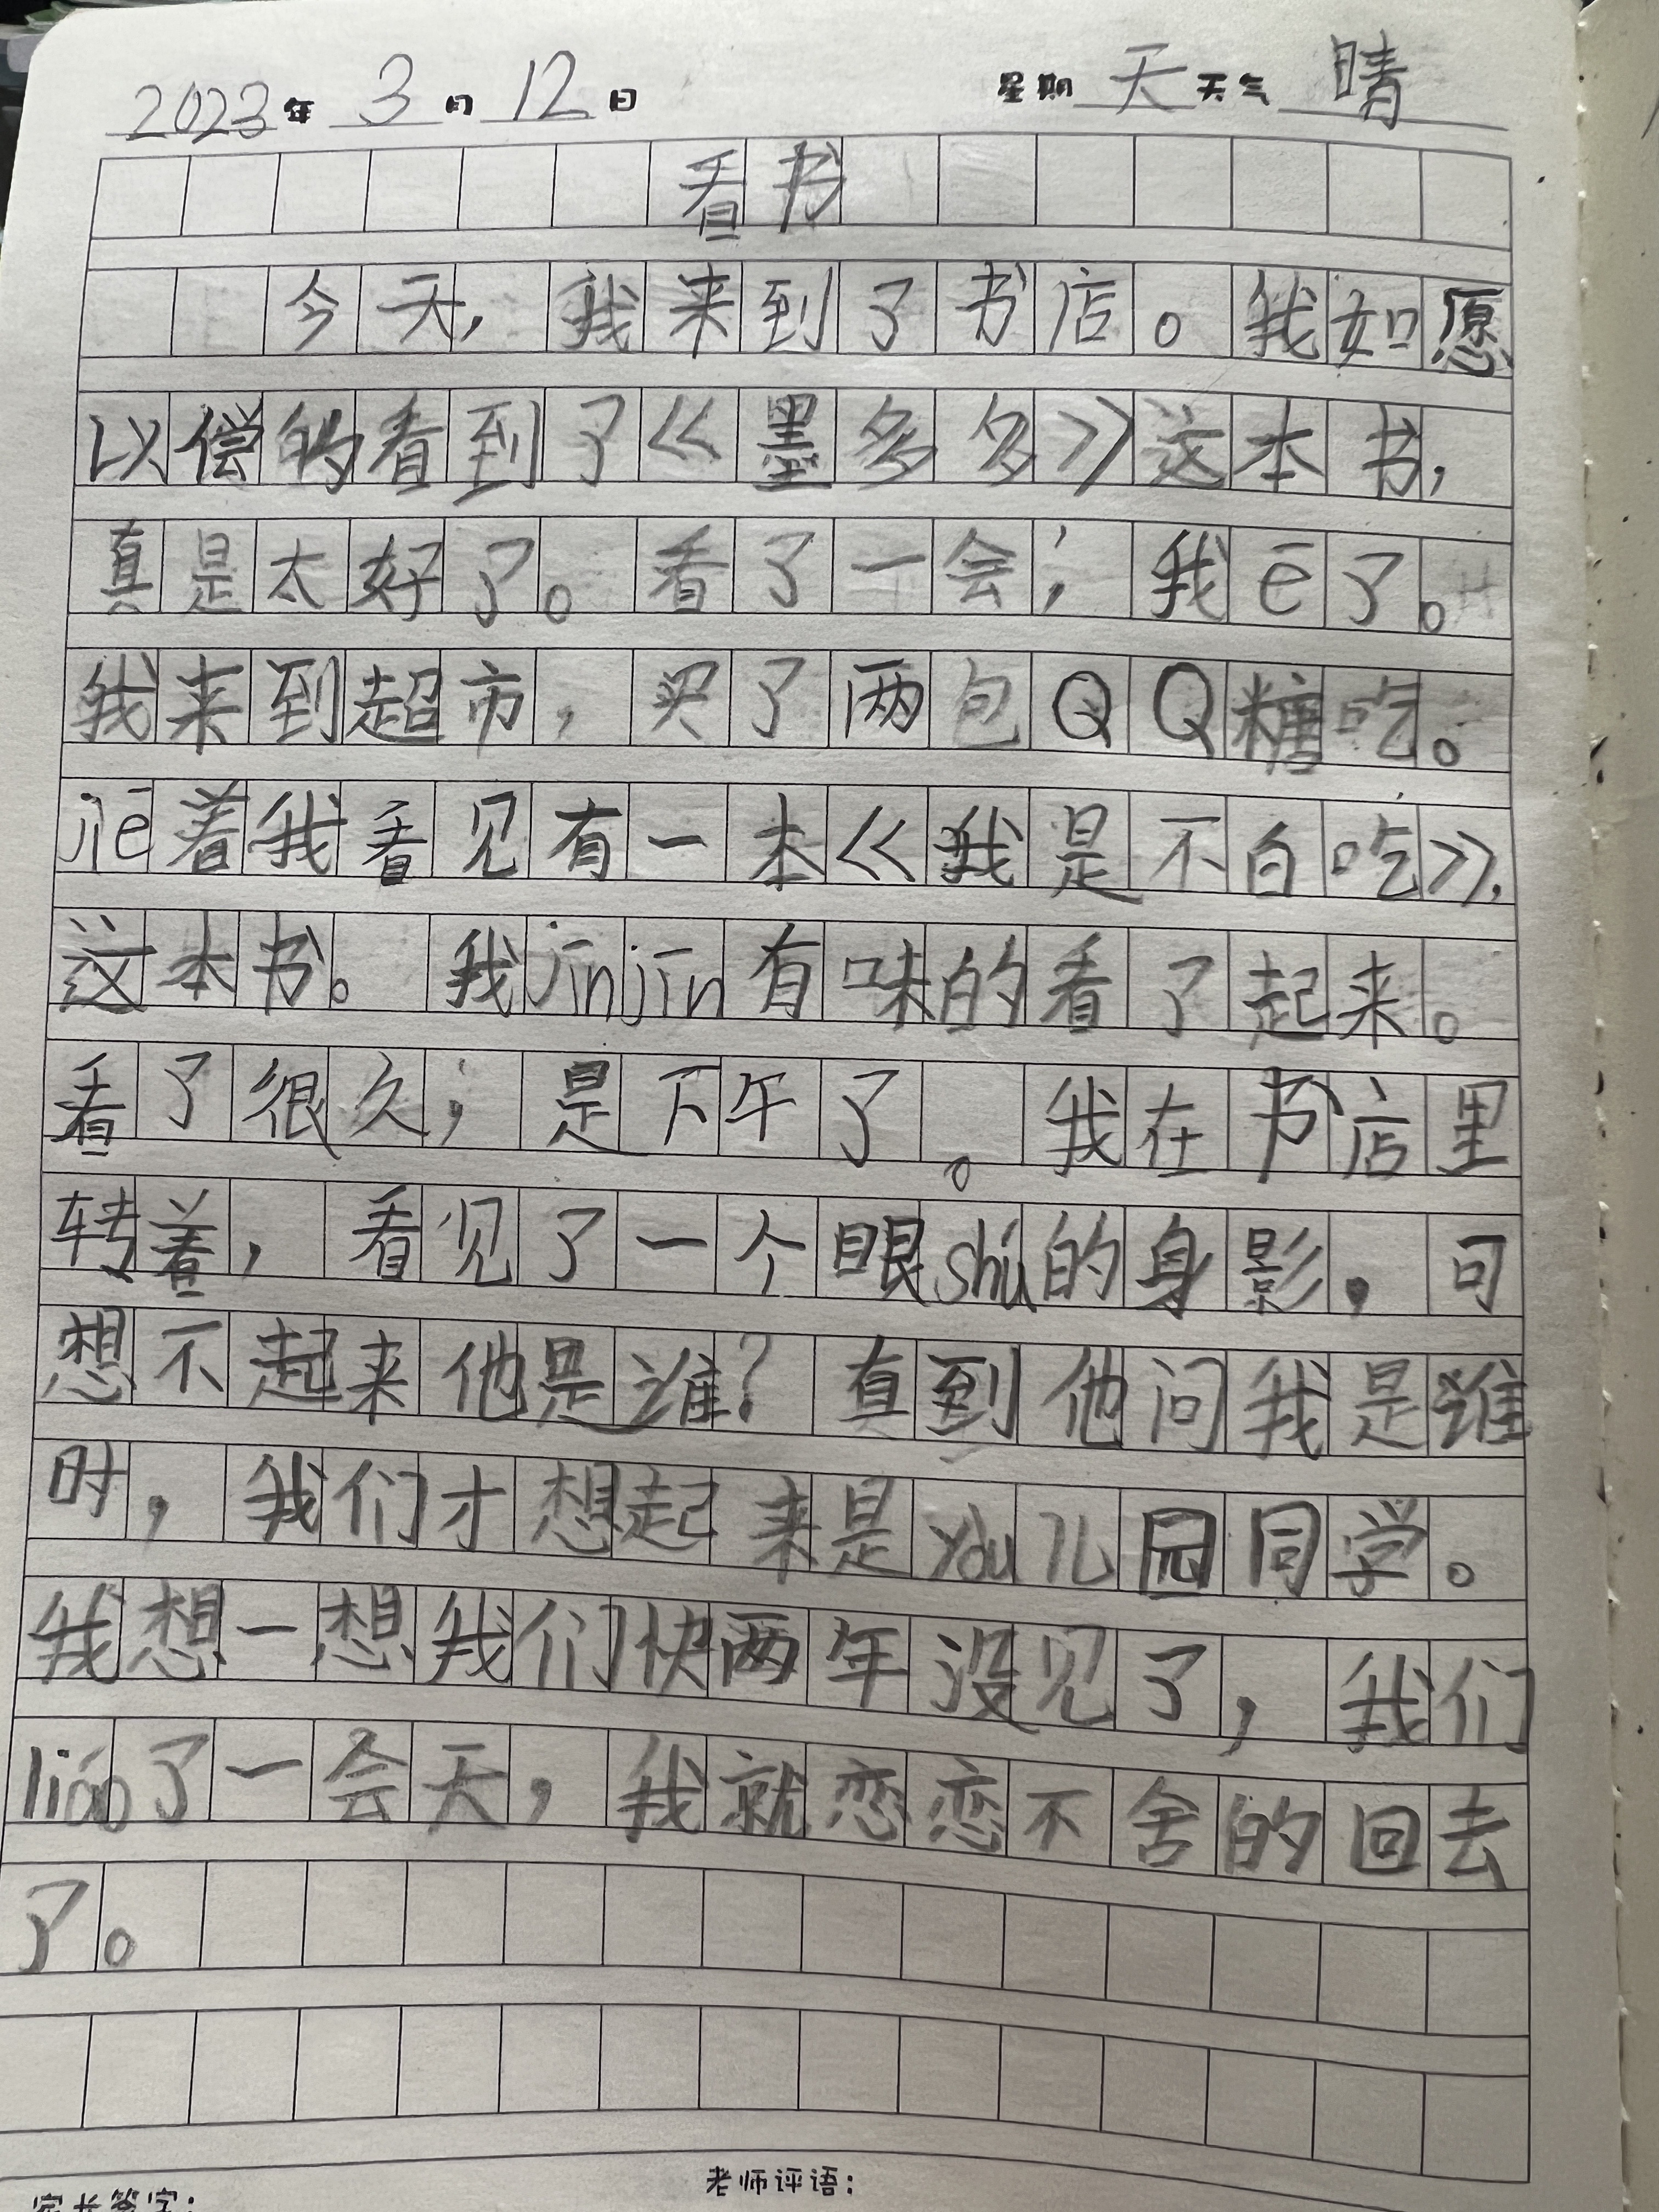 2023年 3月 12日 星期天 天气 晴
看书
今天,我来到了书店。我如愿
以偿的看到了《墨多多》这本书,
真是太好了。看了一会;我ē了。
我来到超市,买了两包QQ糖吃。
jiē着我看见有一本《我是不白吃》,
这本书。我jīnjīn有味的看了起来。
看了很久;是下午了。我在书店里
转着,看见了一个眼shú的身影,可
想不起来他是谁?真到他问我是谁
时,我们才想起来是yòu儿园同学。
我想一想我们快两年没见了,我们
liáo了一会天,我就恋恋不舍的回去
了。
家长签字:
老师评语: